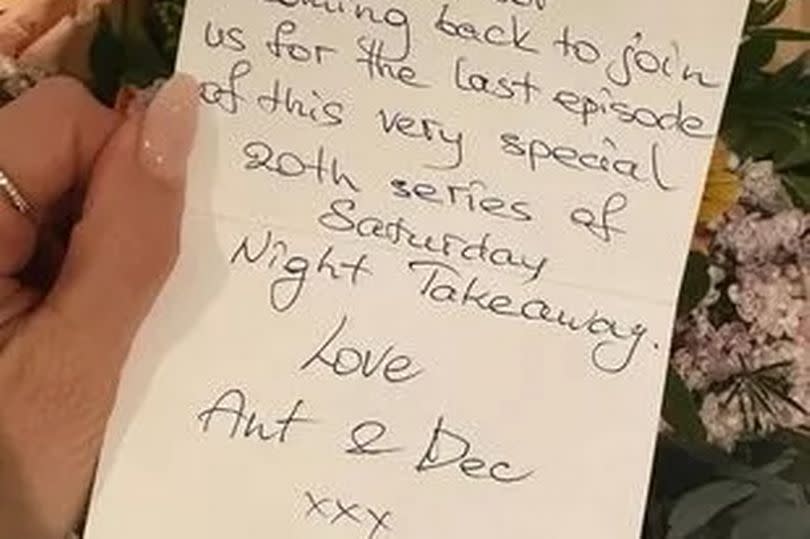 back to join
us for the last episode
of this very special
20th series of
Saturday
Night Takeaway.
Love
Ant & Dec
xxx